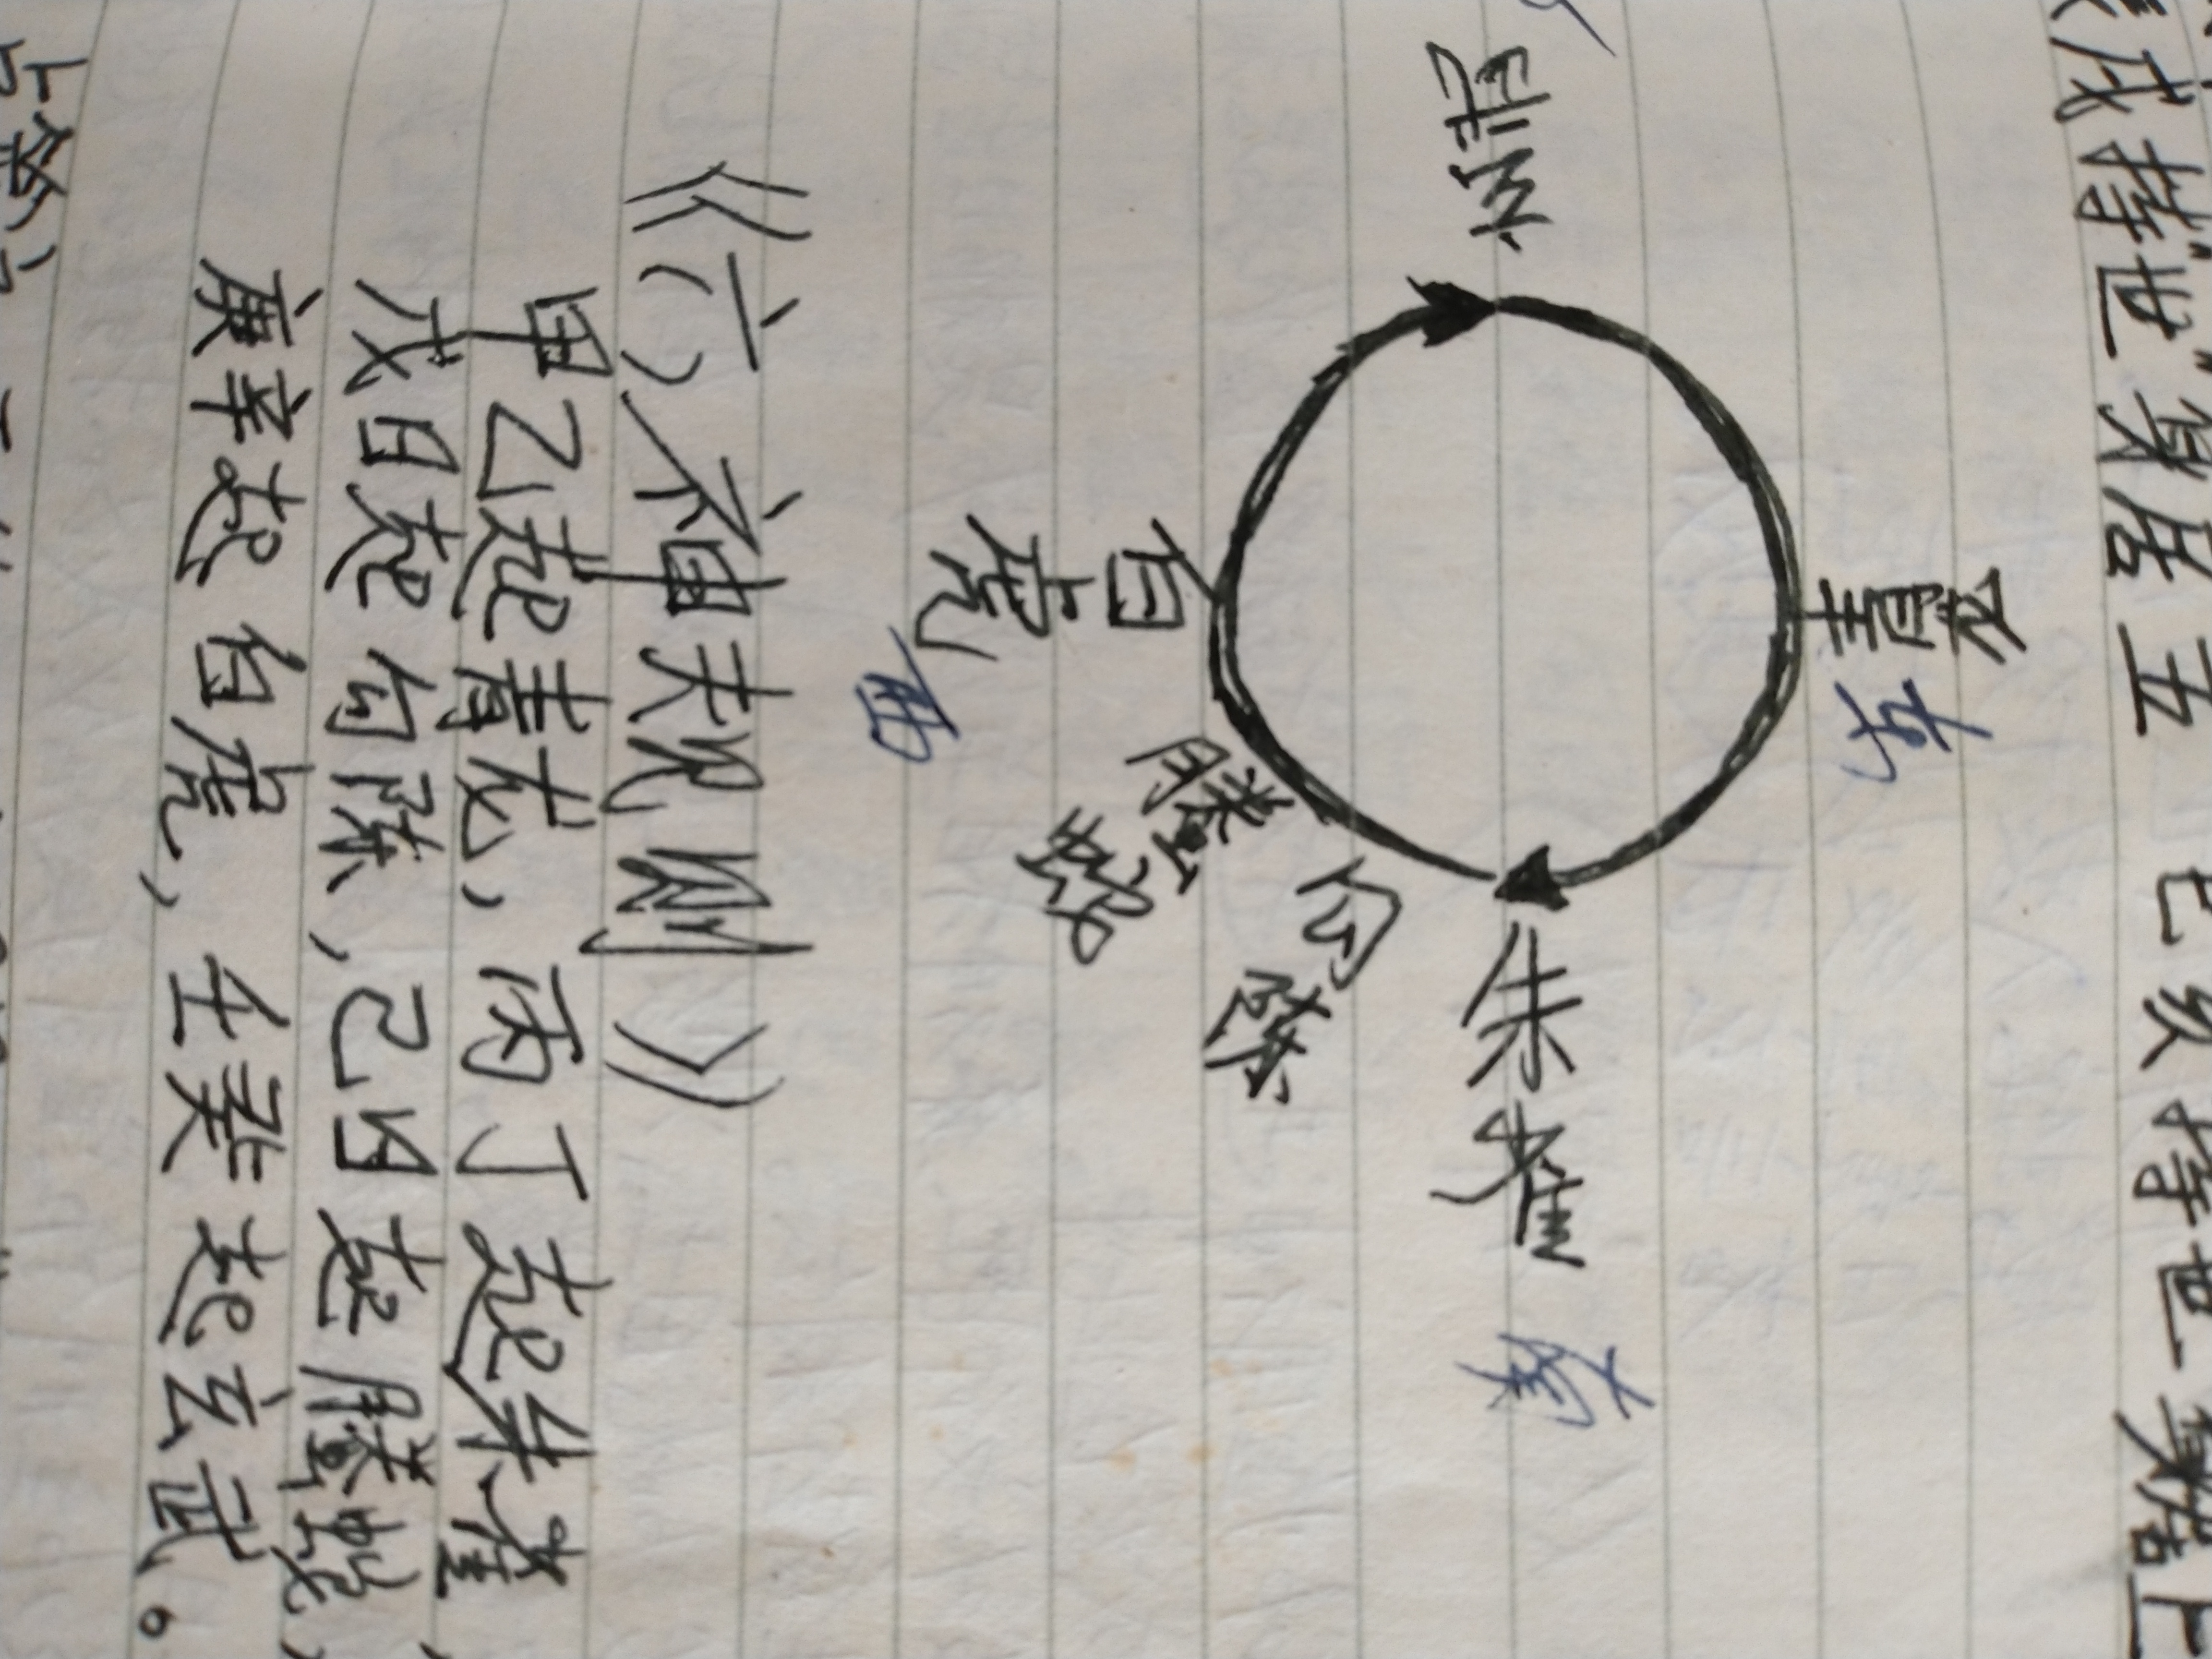 戌持世"身居五 巳亥持世身居上
青龙
东
玄武
朱雀
南
勾陈
腾蛇
白虎
西
《六神规则》
甲乙起青龙，丙丁起朱雀，
戊日起勾陈，己日起腾蛇，
庚辛起白虎，壬癸起玄武。